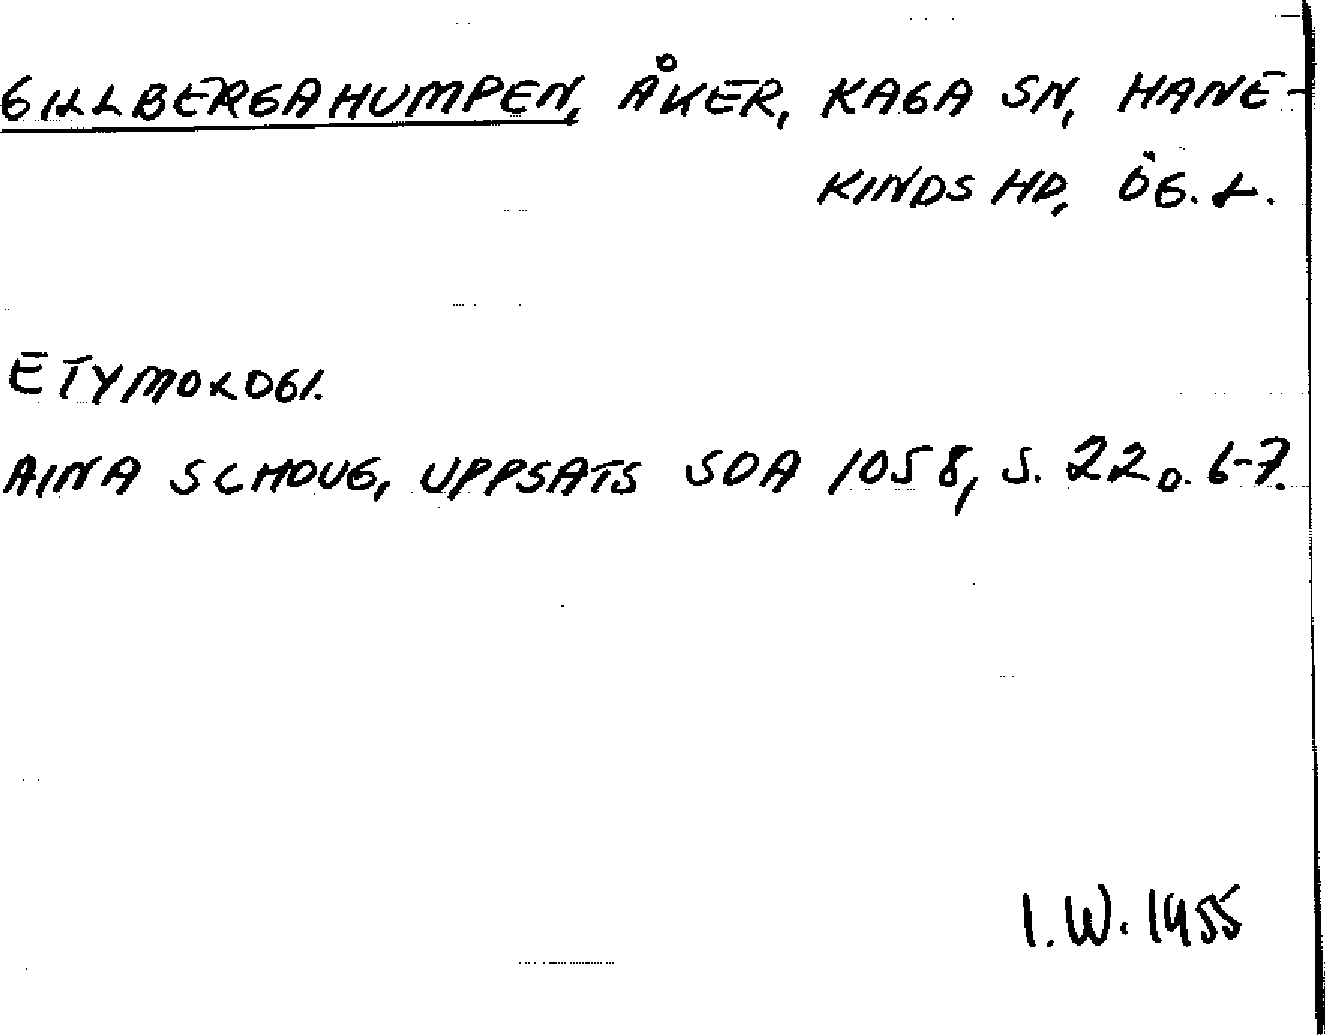 GILLBERGAHUMPEN, ÅKER, KAGA SN, HANE-
KINDS HD, ÖG. L.
ETYMOLOGI.
AINA SCHOUG, UPPSATS SOA 1058, S. 22 o. 6-7.
I.W. 1955